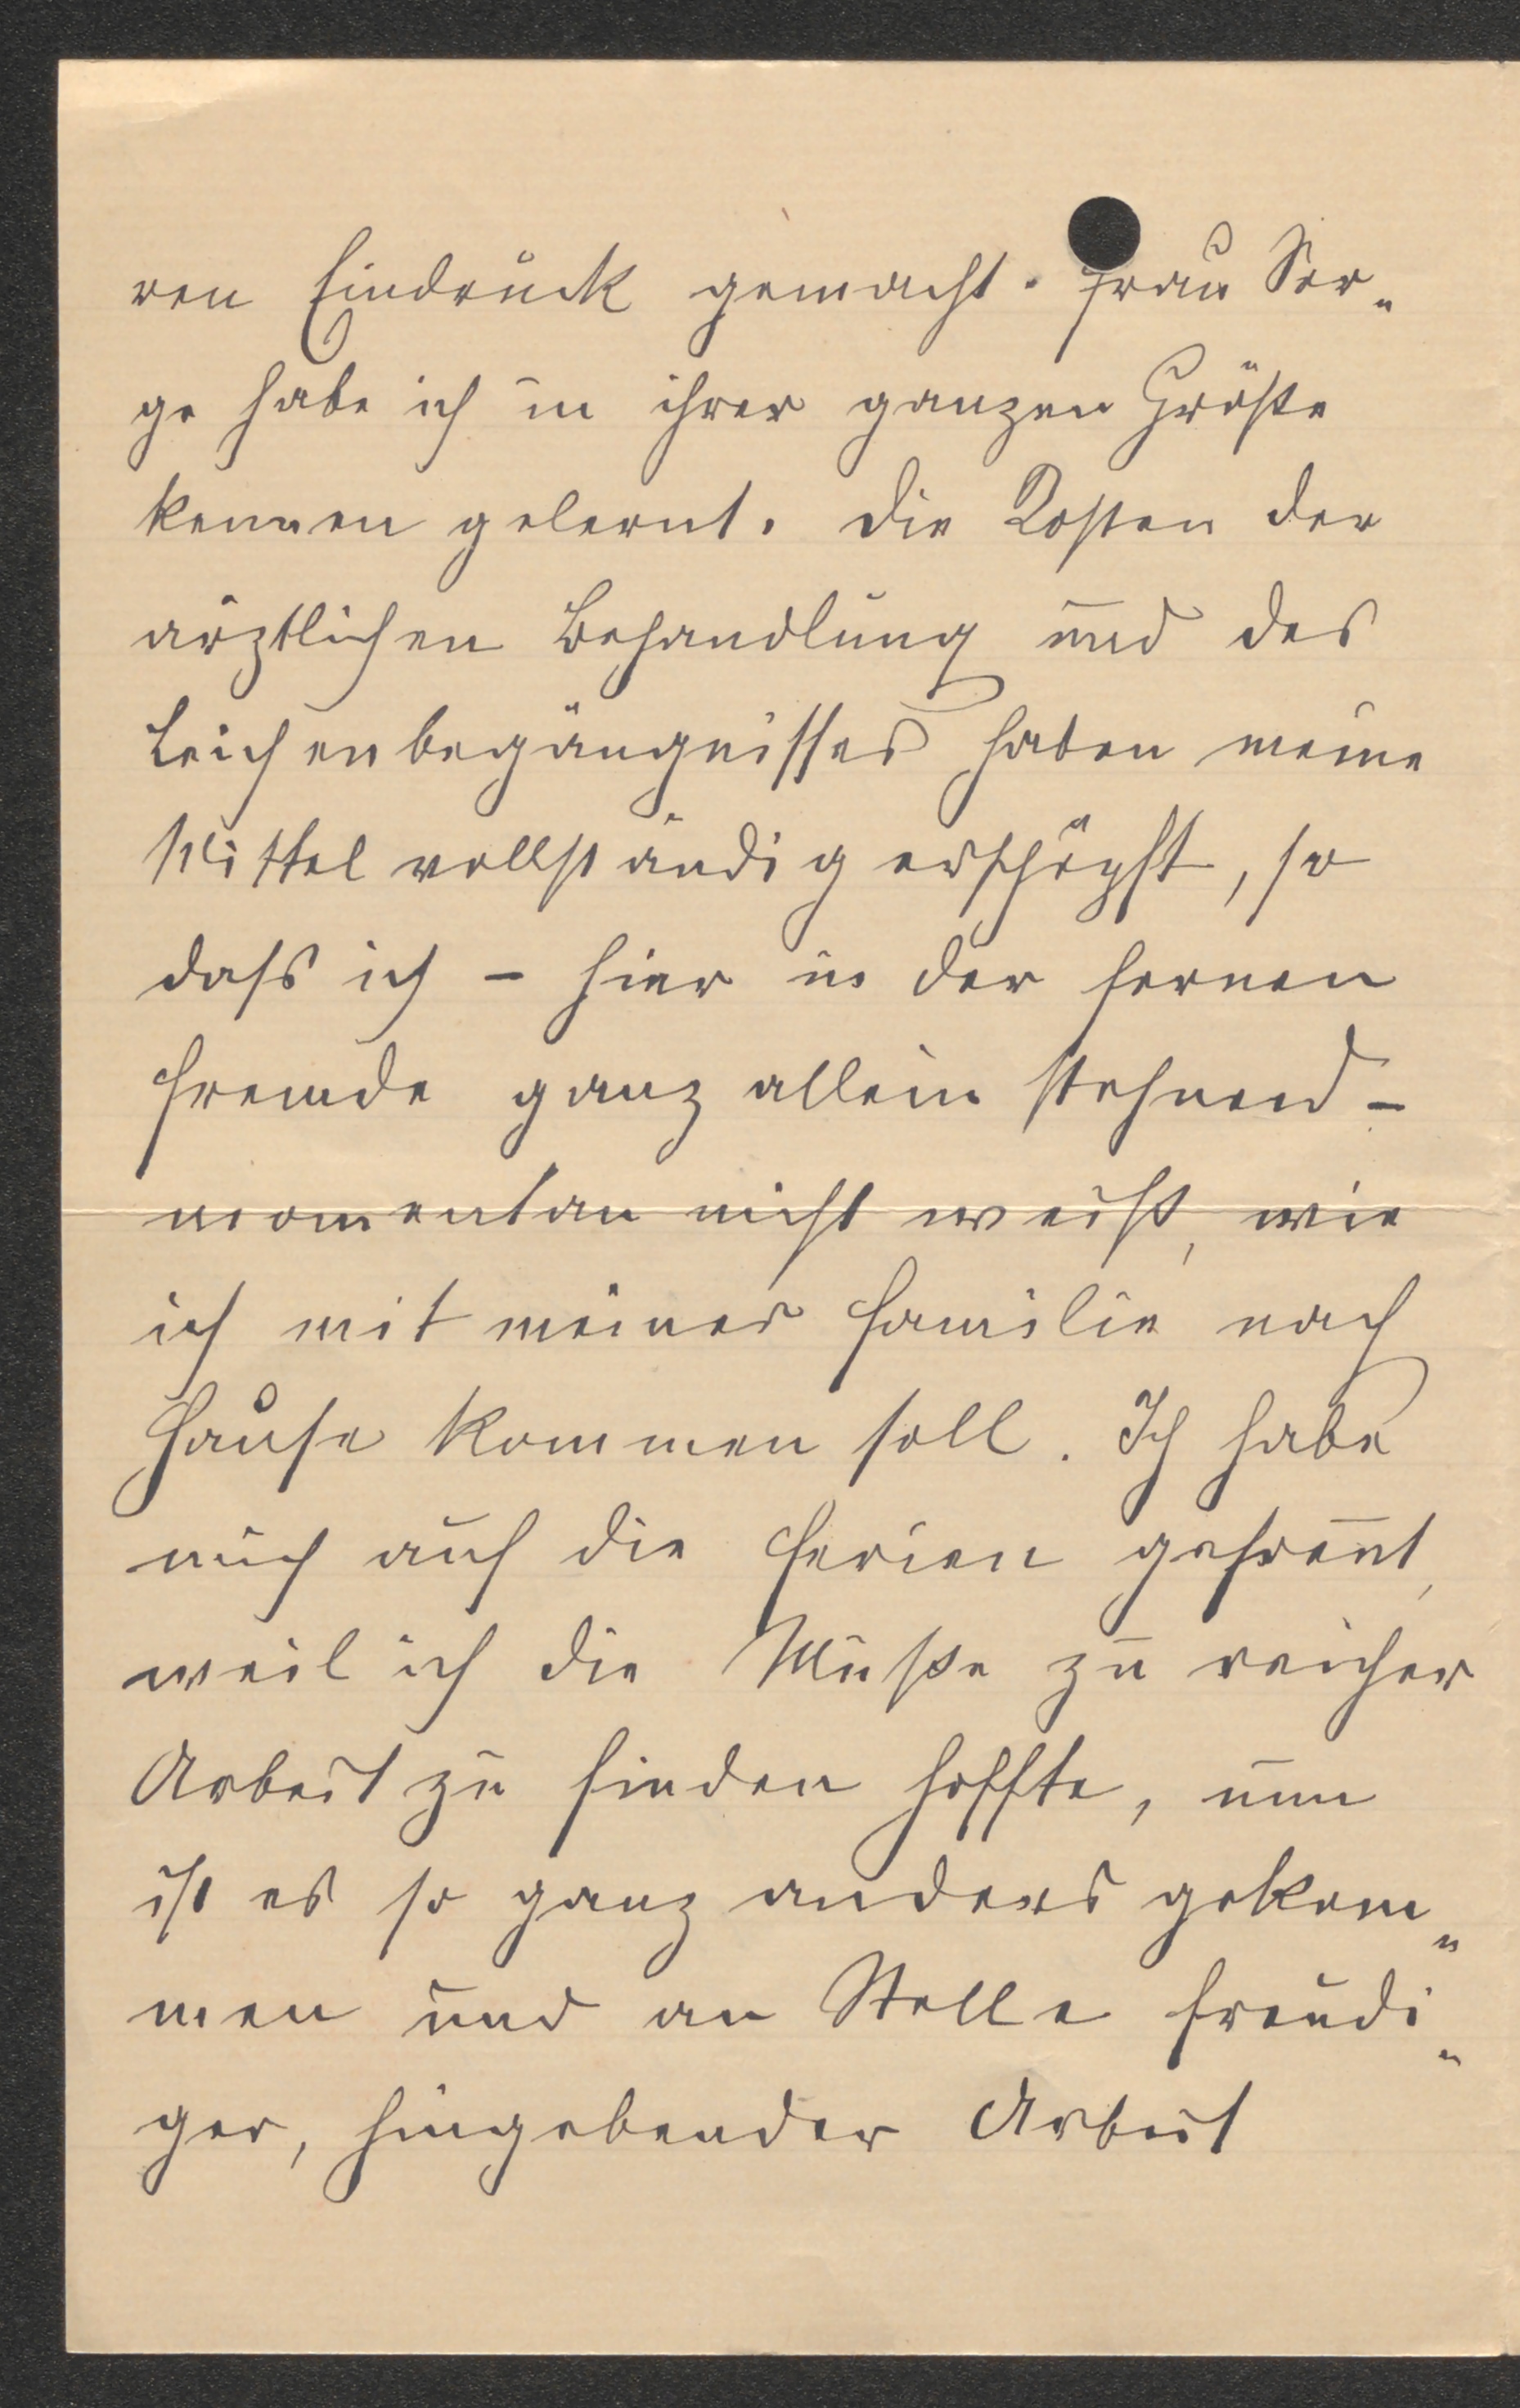 ren Eindruck gemacht. Frau Sor-
ge habe ich in ihrer ganzen Größe
kennen gelernt. Die Kosten der
ärztlichen Behandlung und des
Leichenbegängnisses haben meine
Mittel vollständig erschöpft, so
dass ich – hier in der fernen
Fremde ganz allein stehend –
momentan nicht weiß, wie
ich mit meiner Familie nach
Hause kommen soll. Ich habe
mich auf die Ferien gefreut,
weil ich die Muße zu reicher
Arbeit zu finden hoffte, nun
ist es so ganz anders gekom-
men und an Stelle freudi-
ger, hingebender Arbeit